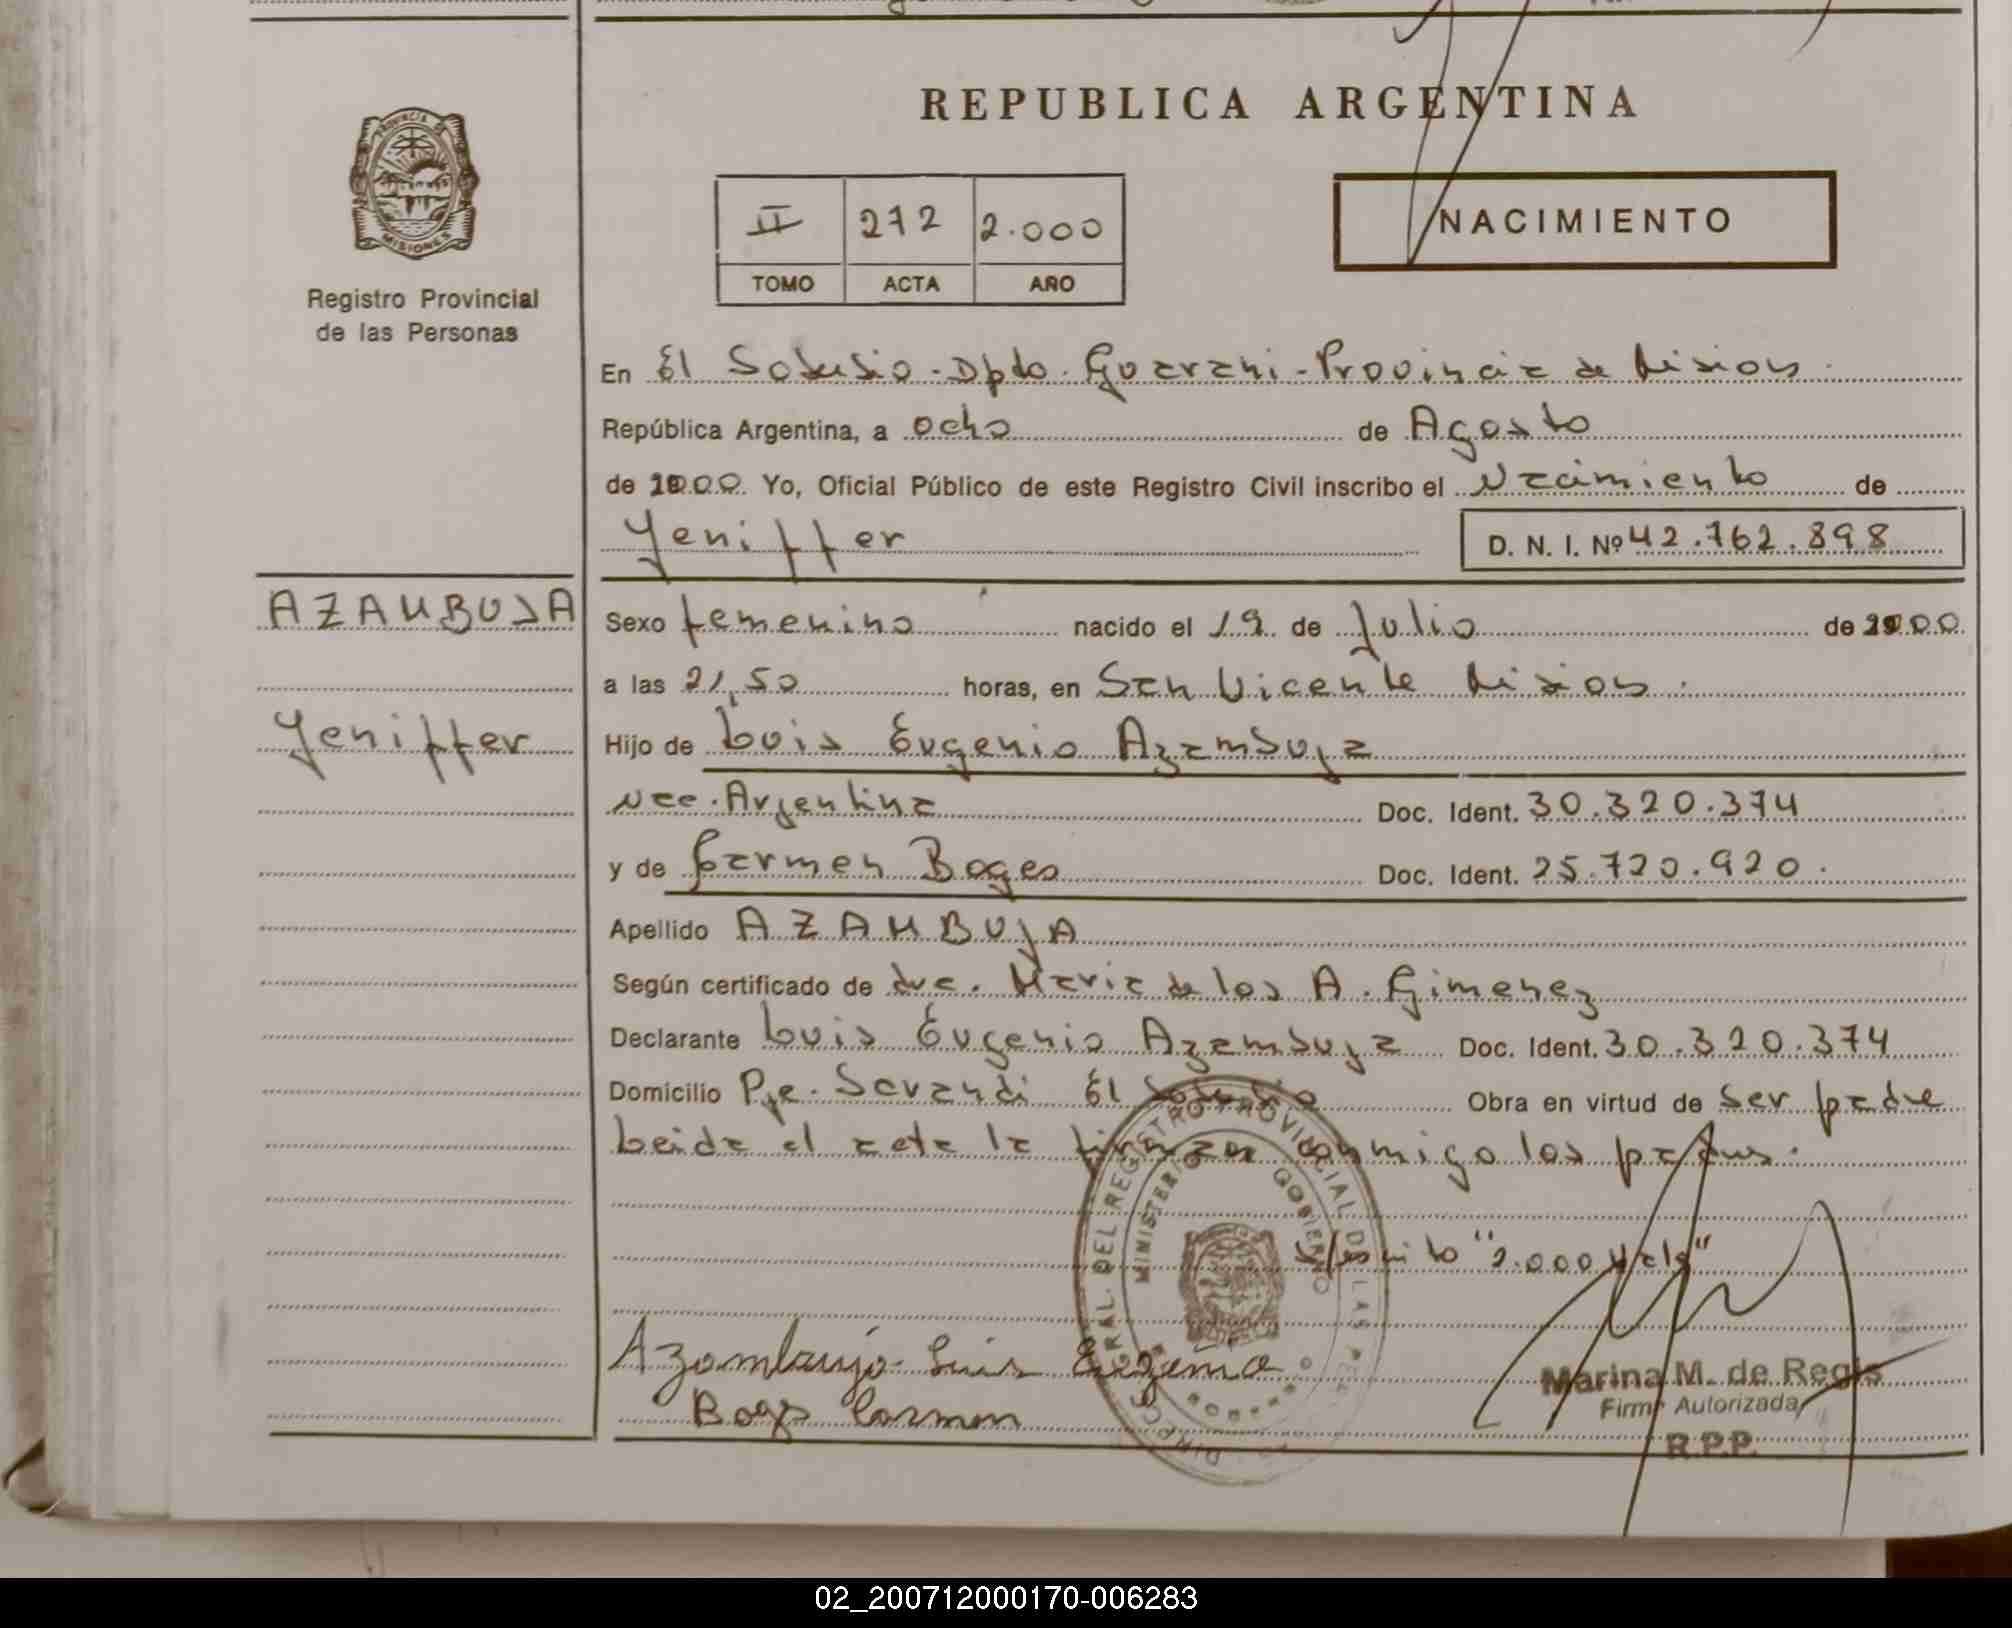 REPUBLICA ARGENTINA
PROVINCIA DE
MISIONES
Registro Provincial
de las Personas
II 272 2.000
TOMO ACTA AÑO
NACIMIENTO
En El Soberbio - Dpto. Guarani - Provincia de Misiones
República Argentina, a ocho de Agosto
de 2000. Yo, Oficial Público de este Registro Civil inscribo el Nacimiento de
Yeniffer D. N. I. Nº 42.762.898
AZAMBUJA
Yeniffer
Sexo femenino nacido el 19 de Julio de 2000
a las 21,50 horas, en San Vicente Misiones.
Hijo de Luis Eugenio Azambuja
Nac. Argentina Doc. Ident. 30.320.374
y de Carmen Boges Doc. Ident. 25.720.920.
Apellido AZAMBUJA
Según certificado de dra. Maria de los A. Gimenez
Declarante Luis Eugenio Azambuja Doc. Ident. 30.320.374
Domicilio Pje. Sarandi El Soberbio Obra en virtud de ser padre
Leida el acta la firman conmigo los padres.
"2.000 Vale"
Azambuja Luis Eugenio
Boges Carmen
MINISTERIO GOBIERNO
Marina M. de Regis
Firma Autorizada
R.P.P.
02_200712000170-006283